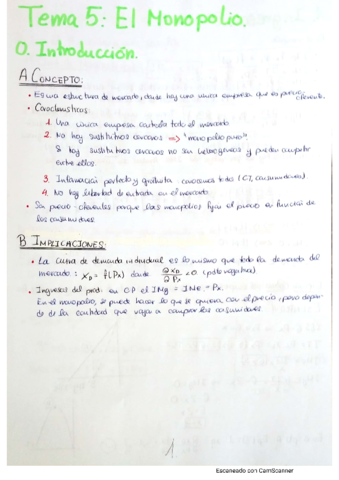 Tema 5: El Monopolio.
0. Introducción.
A CONCEPTO:
• Es una estructura de mercado, donde hay una única empresa que es precio-oferente.
• Características:
1. Una única empresa controla todo el mercado
2. No hay sustitutivos cercanos => "monopolio puro".
Si hay sustitutivos cercanos no son heterogéneos y pueden competir
entre ellos.
3. Información perfecta y gratuita conocemos todo (CT, consumidores)
4. No hay libertad de entrada en el mercado.
• Son precio-oferentes porque los monopolios fijan el precio en función de
los consumidores.
B IMPLICACIONES:
• La curva de demanda individual es lo mismo que toda la demanda del
mercado: XD = f(Px) donde ∂XD/∂Px <0 (pdte negativa)
• Ingresos del prod: en CP el INg = INe = Px.
En el monopolio, se puede hacer lo que se quiera con el precio, pero depen-
de de la cantidad que vayan a comprar los consumidores
1
Escaneado con CamScanner